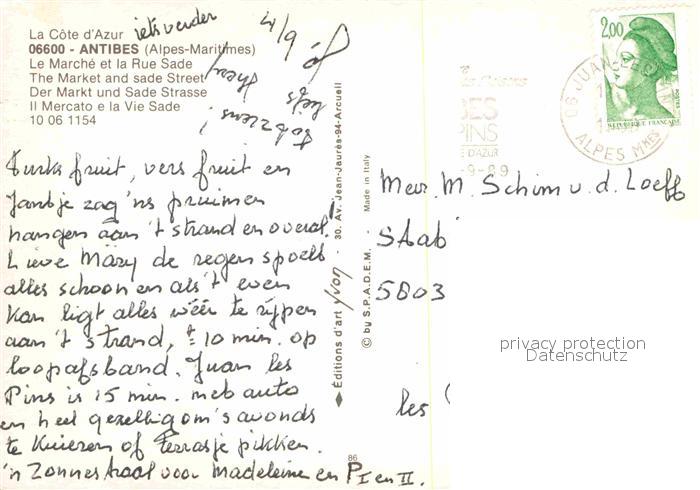 La Côte d'Azur iets verder
06600 - ANTIBES (Alpes-Maritimes)
Le Marché et la Rue Sade
The Market and sade Street
Der Markt und Sade Strasse
Il Mercato e la Vie Sade
10 06 1154
4/9
Turks fruit, vers fruit en
Jantje zag 'ns pruimen
hangen aan 't strand en overal!
Lieve Mary de regen spoelt
alles schoon en als 't even
kan ligt alles wéér te rijpen
aan 't strand, ± 10 min. op
loopafstand. Juan les
Pins is 15 min. met auto
en heel gezellig om 's avonds
te kuieren of terrasje pikken.
'n Zonnestraal voor Madeleine en P I en II.
Editions d'art yvon - 30. Av. Jean-Jaurès-94-Arcueil
© by S.P.A.D.E.M. Made in Italy
86
2,00
REPUBLIQUE FRANÇAISE
POSTES
06 JUAN-LES-
ALPES MMES
PINS
D'AZUR
-9-89
Mevr. M. Schim v. d. Loeff
5803
les
privacy protection
Datenschutz